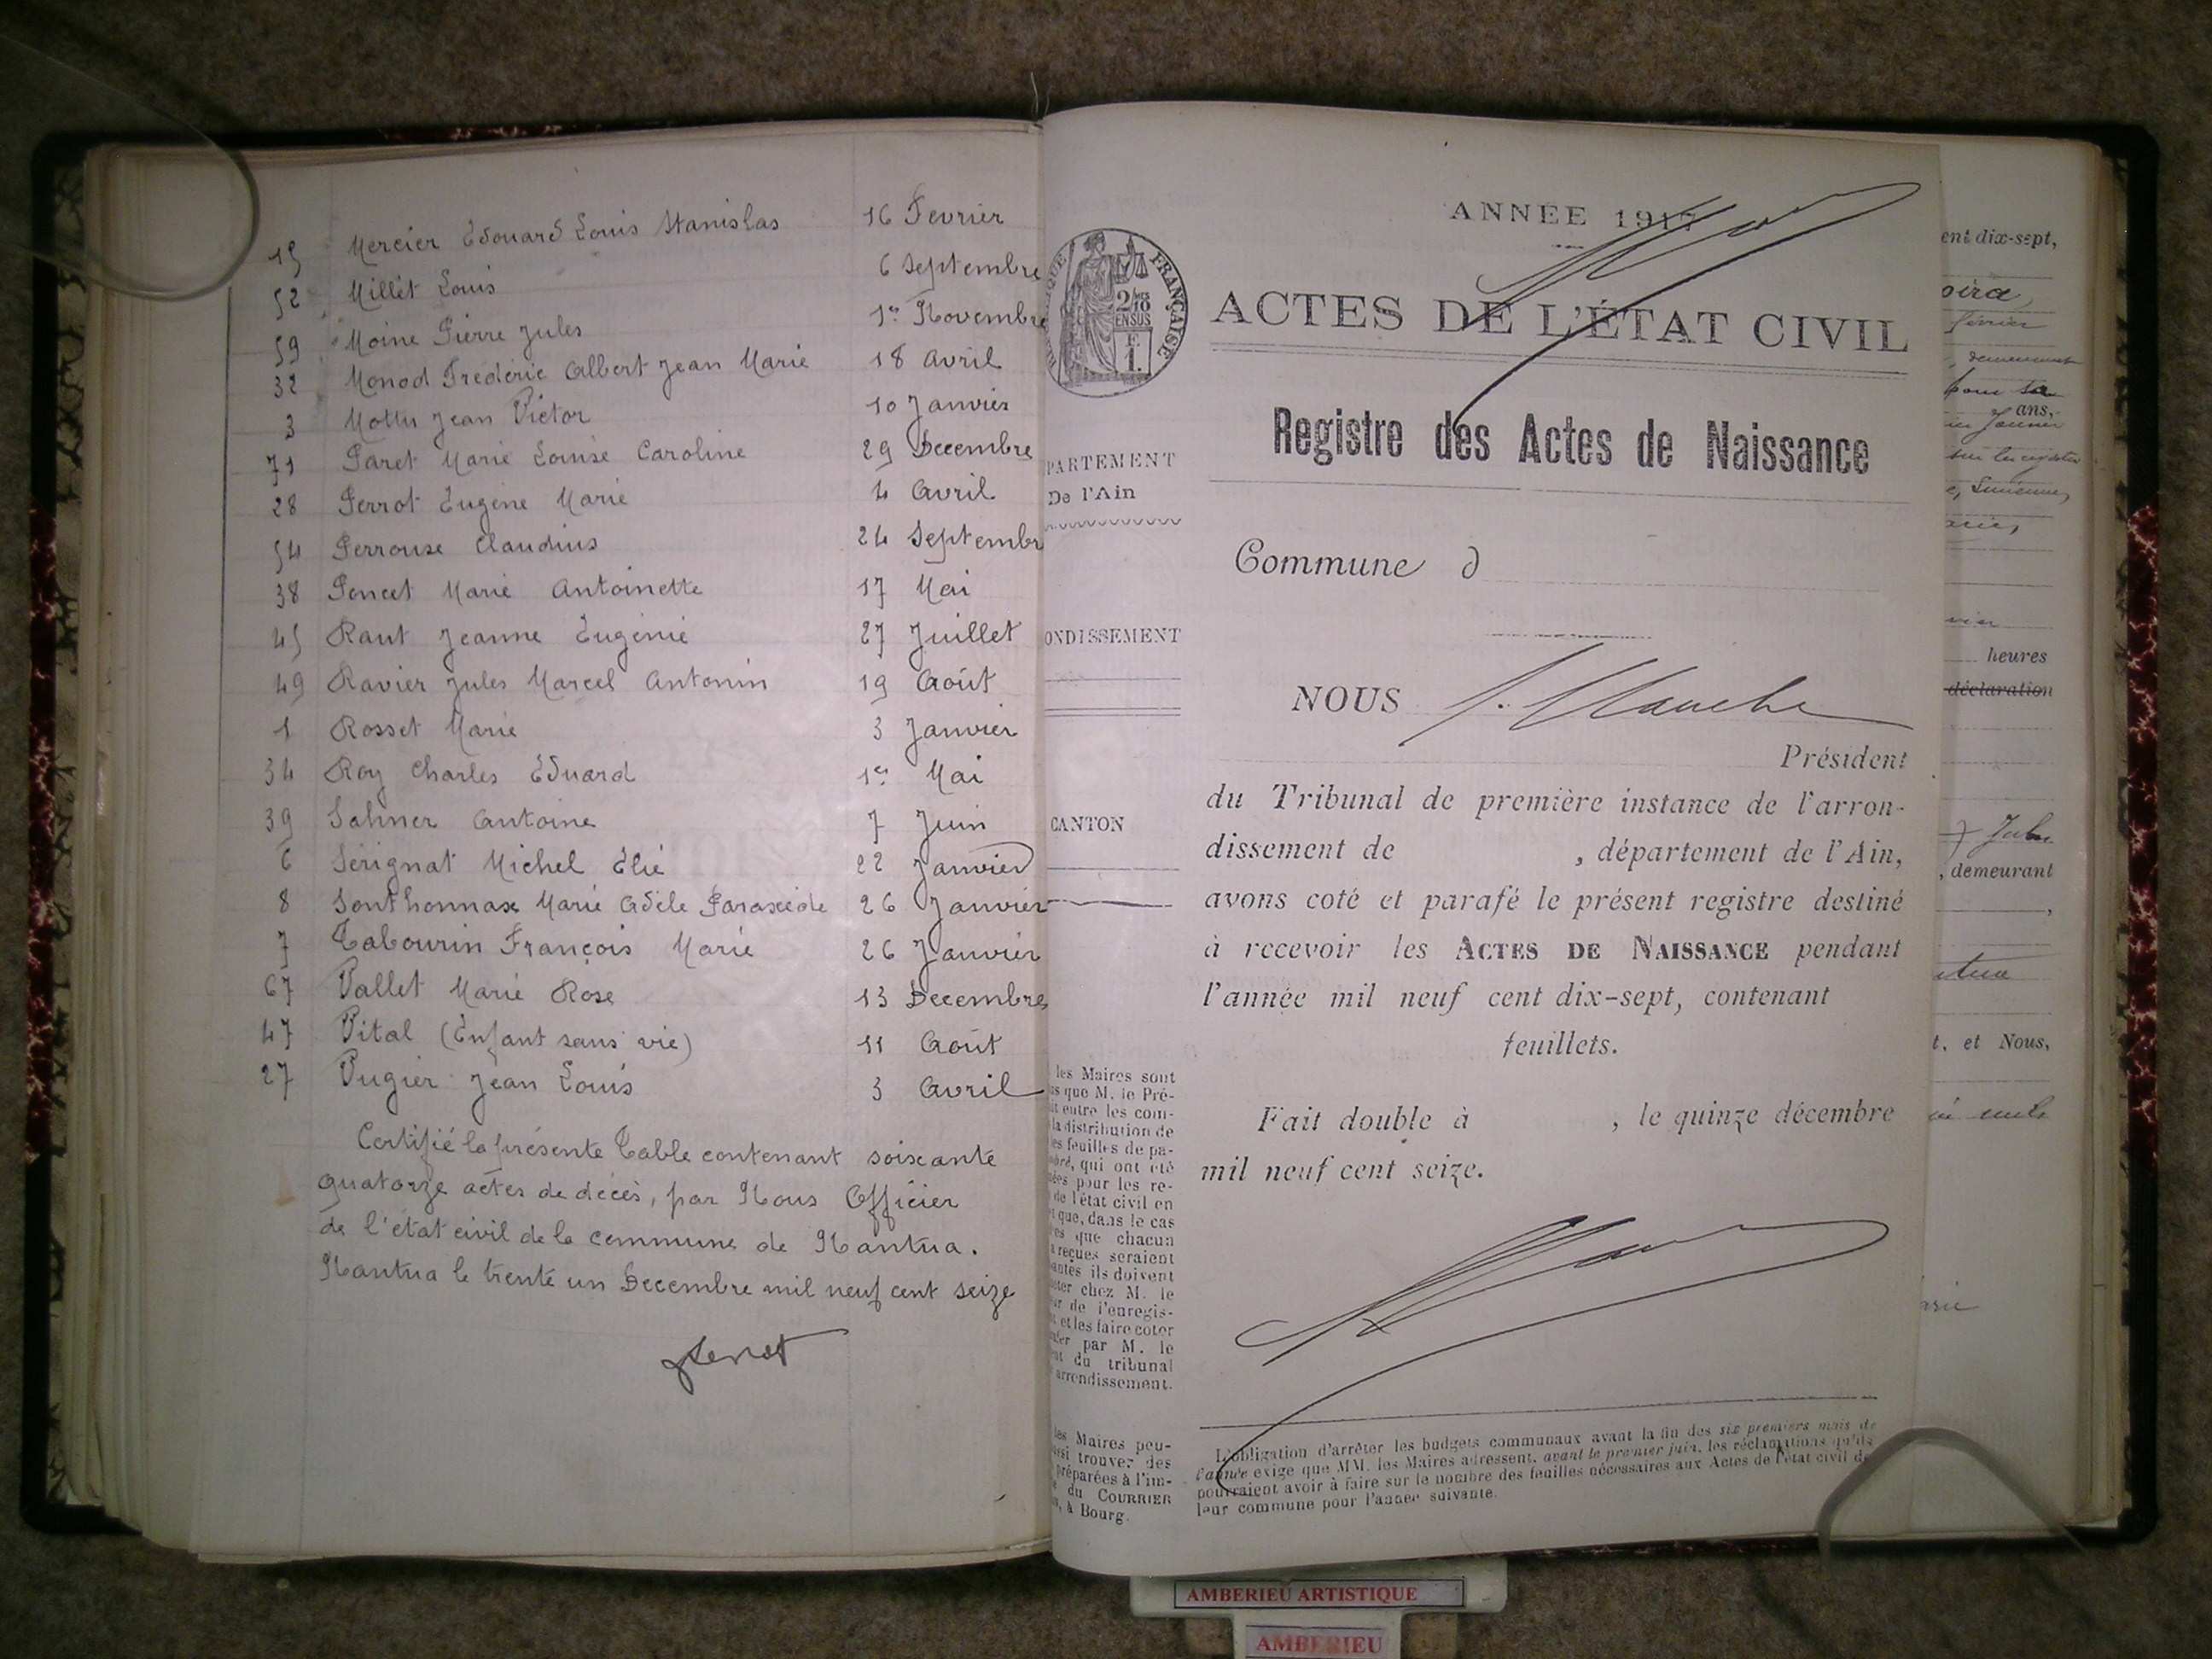 15 Mercier Edouard Louis Stanislas 16 Fevrier
52 Millet Louis 6 Septembre
59 Moine Pierre Jules 1er Novembre
32 Monod Frederic Albert Jean Marie 18 Avril
3 Mottu Jean Victor 10 Janvier
71 Paret Marie Louise Caroline 29 Decembre
28 Perrot Eugene Marie 4 Avril
54 Perrouse Claudius 24 Septembr
38 Poncet Marie Antoinette 17 Mai
45 Raut Jeanne Eugénie 27 Juillet
49 Ravier Jules Marcel Antonin 19 Août
1 Rosset Marie 3 Janvier
34 Roy Charles Eduard 1er Mai
39 Sahner Antoine 7 Juin
6 Sérignat Michel Elie 22 Janvier
8 Sonthonnax Marie Adèle 26 Janvier
7 Tabourin François Marie 26 Janvier
67 Vallet Marie Rose 13 Decembre
47 Vital (Enfant sans vie) 11 Août
27 Vugier Jean Louis 3 Avril
Certifié la présente Table contenant soixante
quatorze actes de décès, par Nous Officier
de l'état civil de la commune de Nantua.
Nantua le trente un Decembre mil neuf cent seize
QUE FRANÇAISE
2/10
EN SUS
F.
1.
PARTEMENT
De l'Ain
ONDISSEMENT
CANTON
les Maires sont
s que M. le Pré-
it entre les com-
la distribution de
les feuilles de pa-
bré, qui ont été
ées pour les re-
de l'état civil en
t que, dans le cas
es que chacun
reçues seraient
antes ils doivent
eter chez M. le
ur de l'enregis-
t et les faire coter
afer par M. le
nt du tribunal
arrondissement.
les Maires peu-
ssi trouver des
préparées à l'im-
e du COURRIER
, à Bourg.
ANNÉE 1917
ACTES DE L'ÉTAT CIVIL
Registre des Actes de Naissance
Commune d
NOUS
Président
du Tribunal de première instance de l'arron-
dissement de , département de l'Ain,
avons coté et parafé le présent registre destiné
à recevoir les ACTES DE NAISSANCE pendant
l'année mil neuf cent dix-sept, contenant
feuillets.
Fait double à , le quinze décembre
mil neuf cent seize.
L'obligation d'arrêter les budgets communaux avant la fin des six premiers mois de
l'année exige que MM. les Maires adressent, avant le premier juin, les réclamations qu'ils
pourraient avoir à faire sur le nombre des feuilles nécessaires aux Actes de l'état civil de
leur commune pour l'année suivante.
ent dix-sept,
février
ans,
heures
déclaration
, demeurant
t, et Nous,
AMBERIEU ARTISTIQUE
AMBERIEU